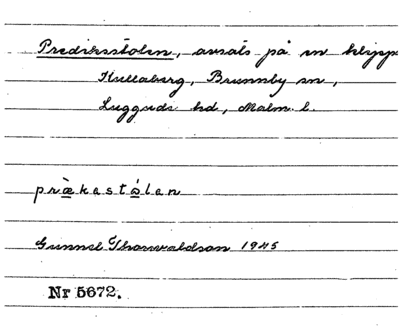 Predikstolen, avsats på en klipp
Kullaberg, Brunnby sn,
Luggude hd, Malm. l.
prækastålen
Gunnel Thorwaldson 1945
Nr 5672.